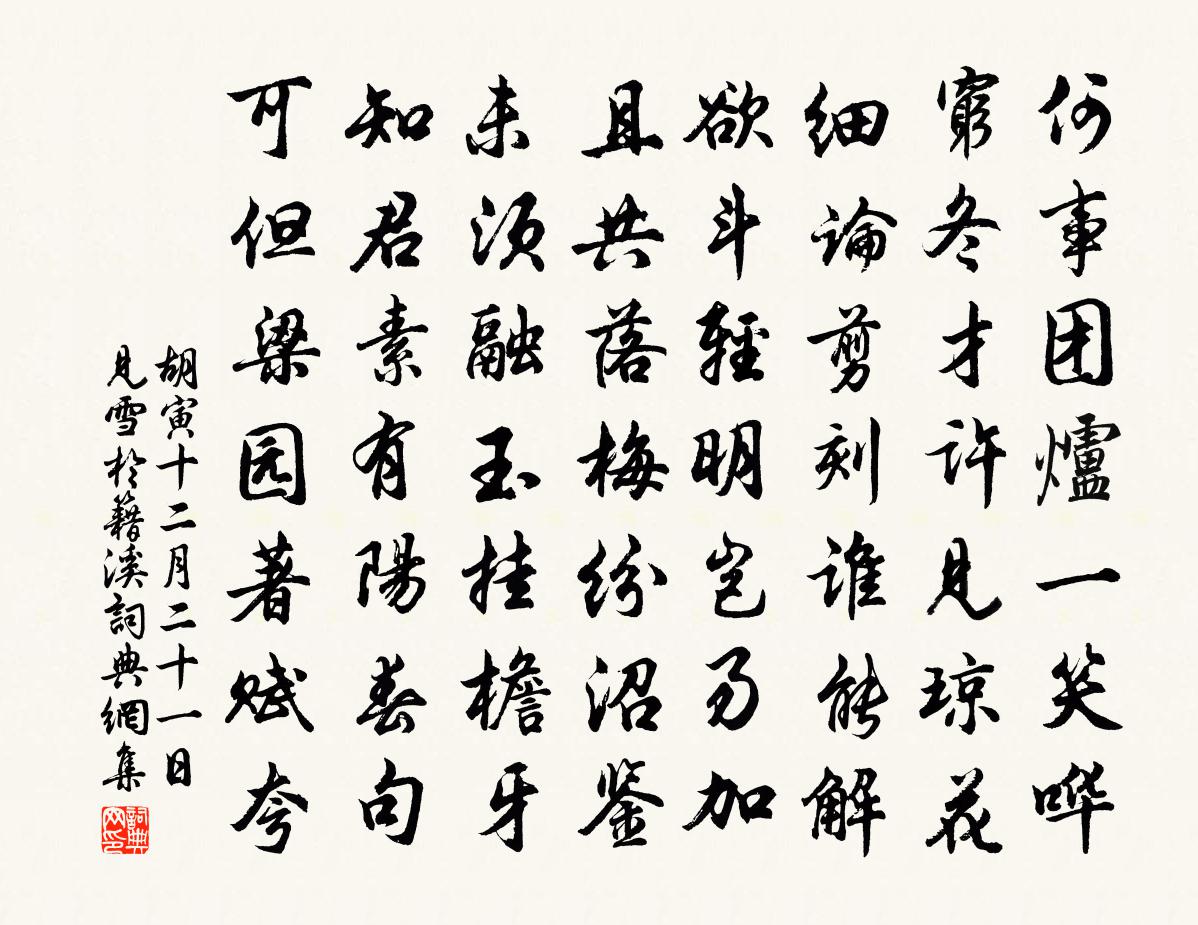 何事团爐一笑哗
窮冬才許見琼花
细論剪刻誰能解
欲斗輕明岂易加
且共落梅纷沼鉴
未须融玉挂檐牙
知君素有陽春句
可但梁园著赋夸
胡寅十二月二十一日
見雪於籍溪詞典網集
詞典网印